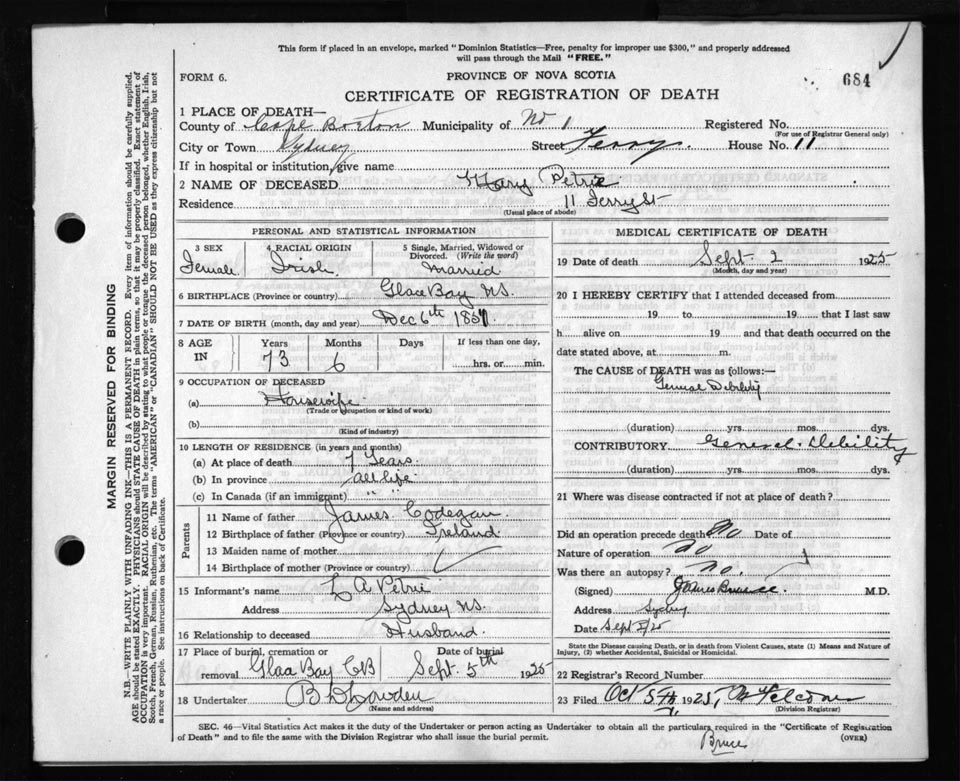 This form if placed in an envelope, marked "Dominion Statistics—Free, penalty for improper use $300," and properly addressed
will pass through the Mail "FREE."
FORM 6.
PROVINCE OF NOVA SCOTIA
684
CERTIFICATE OF REGISTRATION OF DEATH
1 PLACE OF DEATH—
County of Cape Breton Municipality of No 1 Registered No.
(For use of Registrar General only)
City or Town Sydney Street Ferry. House No. 11
If in hospital or institution, give name
2 NAME OF DECEASED Mary Petrie
Residence 11 Ferry St
(Usual place of abode)
PERSONAL AND STATISTICAL INFORMATION
3 SEX 4 RACIAL ORIGIN 5 Single, Married, Widowed or
Divorced. (Write the word)
Female Irish. Married
6 BIRTHPLACE (Province or country) Glace Bay NS.
7 DATE OF BIRTH (month, day and year) Dec 6th
8 AGE IN Years Months Days If less than one day,
73 6 hrs. or min.
9 OCCUPATION OF DECEASED
(a) Housewife
(Trade or occupation or kind of work)
(b)
(Kind of industry)
10 LENGTH OF RESIDENCE (in years and months)
(a) At place of death 7 Years.
(b) In province all life
(c) In Canada (if an immigrant) " "
Parents
11 Name of father James
12 Birthplace of father (Province or country) Ireland.
13 Maiden name of mother
14 Birthplace of mother (Province or country)
15 Informant's name A Petrie
Address Sydney NS.
16 Relationship to deceased Husband.
17 Place of burial, cremation or Date of burial
removal Glace Bay CB Sept. 5th 1925
18 Undertaker
(Name and address)
MEDICAL CERTIFICATE OF DEATH
19 Date of death Sept 2 1925
(Month, day and year)
20 I HEREBY CERTIFY that I attended deceased from
19 to 19 that I last saw
h alive on 19 and that death occurred on the
date stated above, at m.
The CAUSE of DEATH was as follows:—
General Debility
(duration) yrs. mos. dys.
CONTRIBUTORY General Debility
(duration) yrs. mos. dys.
21 Where was disease contracted if not at place of death?
Did an operation precede death No Date of
Nature of operation no
Was there an autopsy? no.
(Signed) James Bruce. M.D.
Address Sydney
Date Sept
State the Disease causing Death, or in death from Violent Causes, state (1) Means and Nature of
Injury, (2) whether Accidental, Suicidal or Homicidal.
22 Registrar's Record Number
23 Filed Oct 5th 1925,
(Division Registrar)
SEC. 46—Vital Statistics Act makes it the duty of the Undertaker or person acting as Undertaker to obtain all the particulars required in the "Certificate of Registration
of Death" and to file the same with the Division Registrar who shall issue the burial permit.
(OVER)
Bruce
MARGIN RESERVED FOR BINDING
N.B.—WRITE PLAINLY WITH UNFADING INK—THIS IS A PERMANENT RECORD. Every item of information should be carefully supplied.
AGE should be stated EXACTLY. PHYSICIANS should STATE CAUSE OF DEATH in plain terms, so that it may be properly classified. Exact statement of
OCCUPATION is very important. RACIAL ORIGIN will be described by stating to what people or tongue the deceased person belonged, whether English, Irish,
Scotch, French, German, Russian, Ruthenian, etc. The terms "AMERICAN" or "CANADIAN" SHOULD NOT BE USED as they express citizenship but not
a race or people. See instructions on back of Certificate.